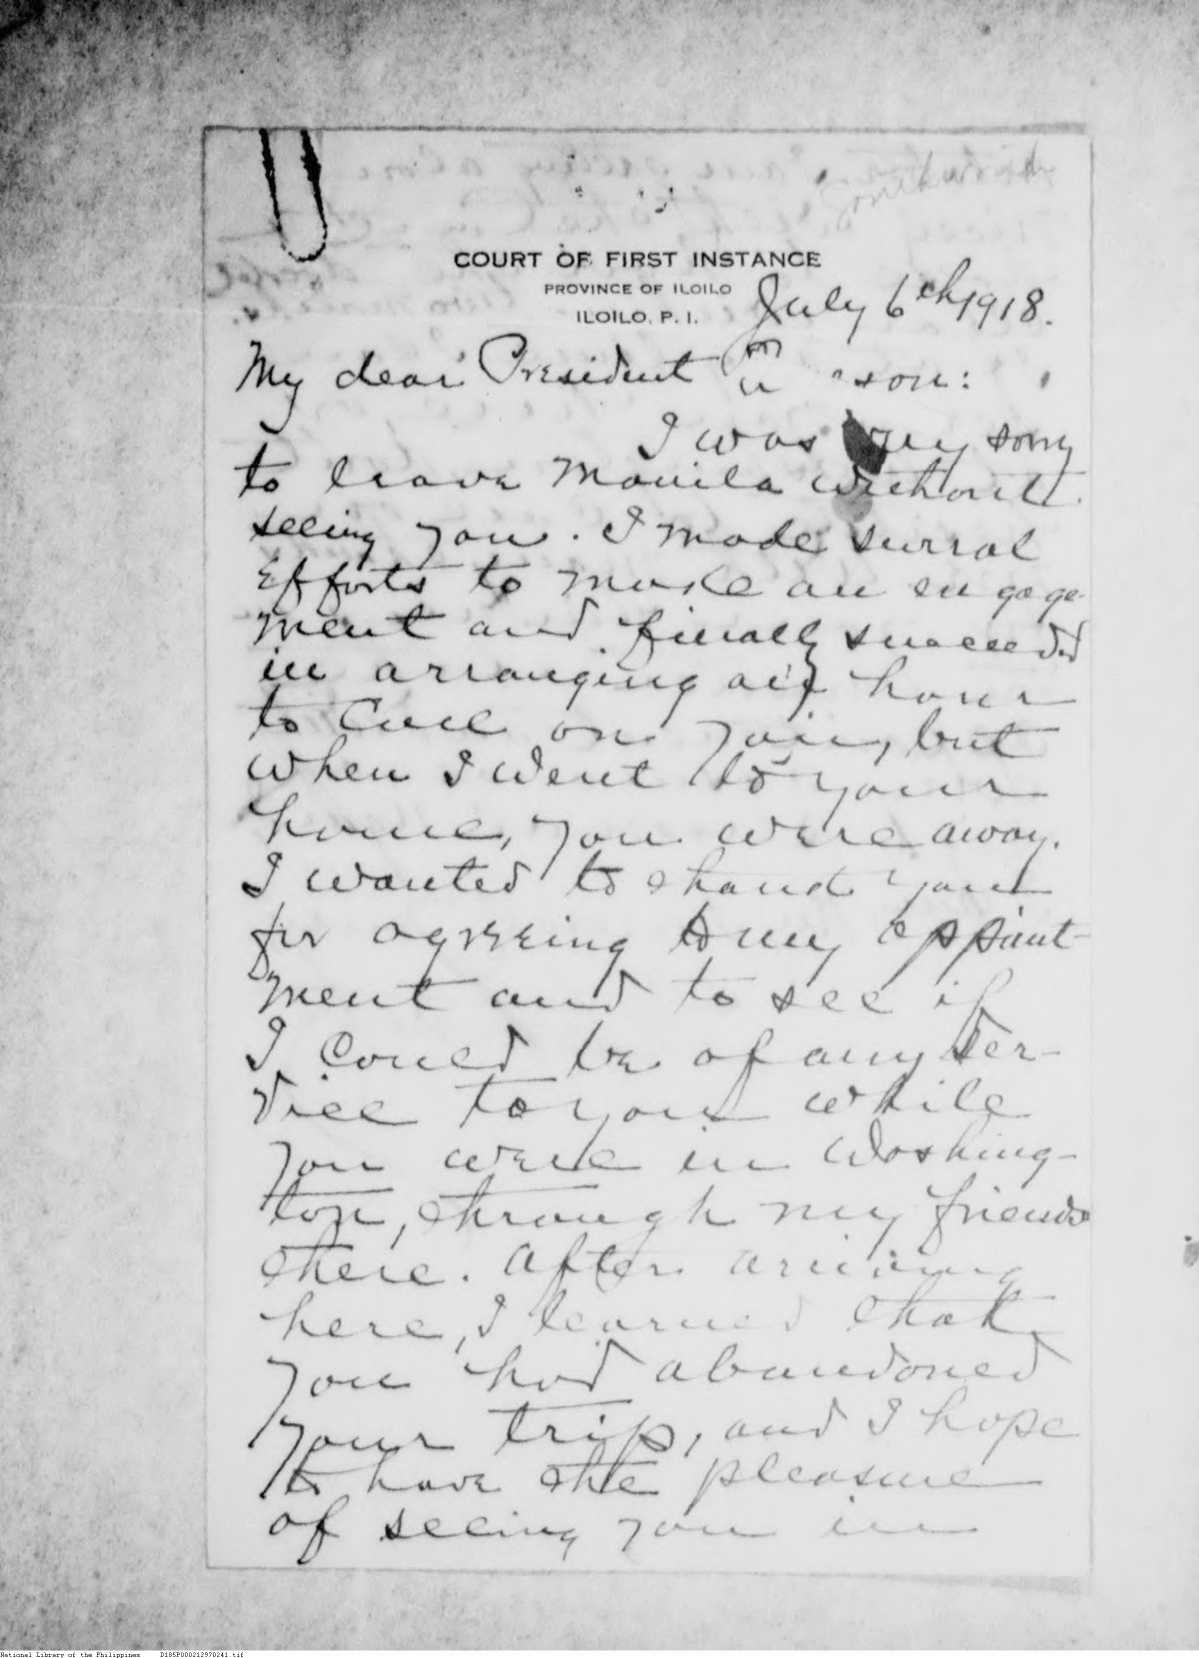 Southworth
COURT OF FIRST INSTANCE
PROVINCE OF ILOILO
ILOILO, P. I.
July 6th 1918.
My dear President
I was very sorry
to leave Manila without
seeing you. I made several
efforts to make an engage-
ment and finally succeeded
in arranging an hour
to call on you, but
when I went to your
home, you were away.
I wanted to thank you
for agreeing to my appoint-
ment and to see if
I could be of any ser-
vice to you while
you were in Washing-
ton, through my friends
there. After arriving
here, I learned that
you had abandoned
your trip, and I hope
to have the pleasure
of seeing you in
National Library of the Philippines D185P000212970241.tif